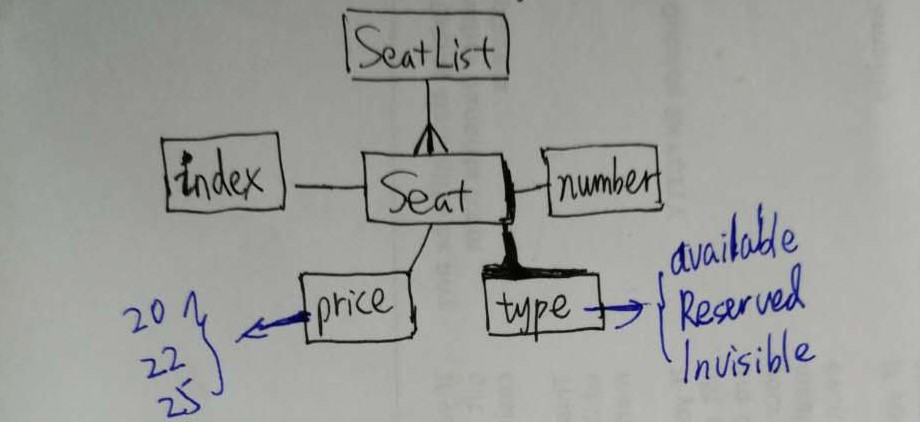 SeatList
index
Seat
number
price
type
20
22
25
available
Reserved
Invisible